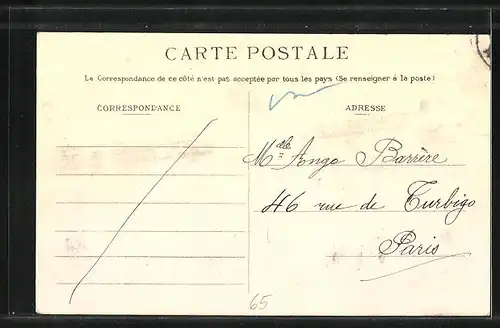 CARTE POSTALE
La Correspondance de ce côté n'est pas acceptée par tous les pays (Se renseigner à la poste)
CORRESPONDANCE
ADRESSE
Mdlle Ange Barrère
46 rue de Turbigo
Paris
65